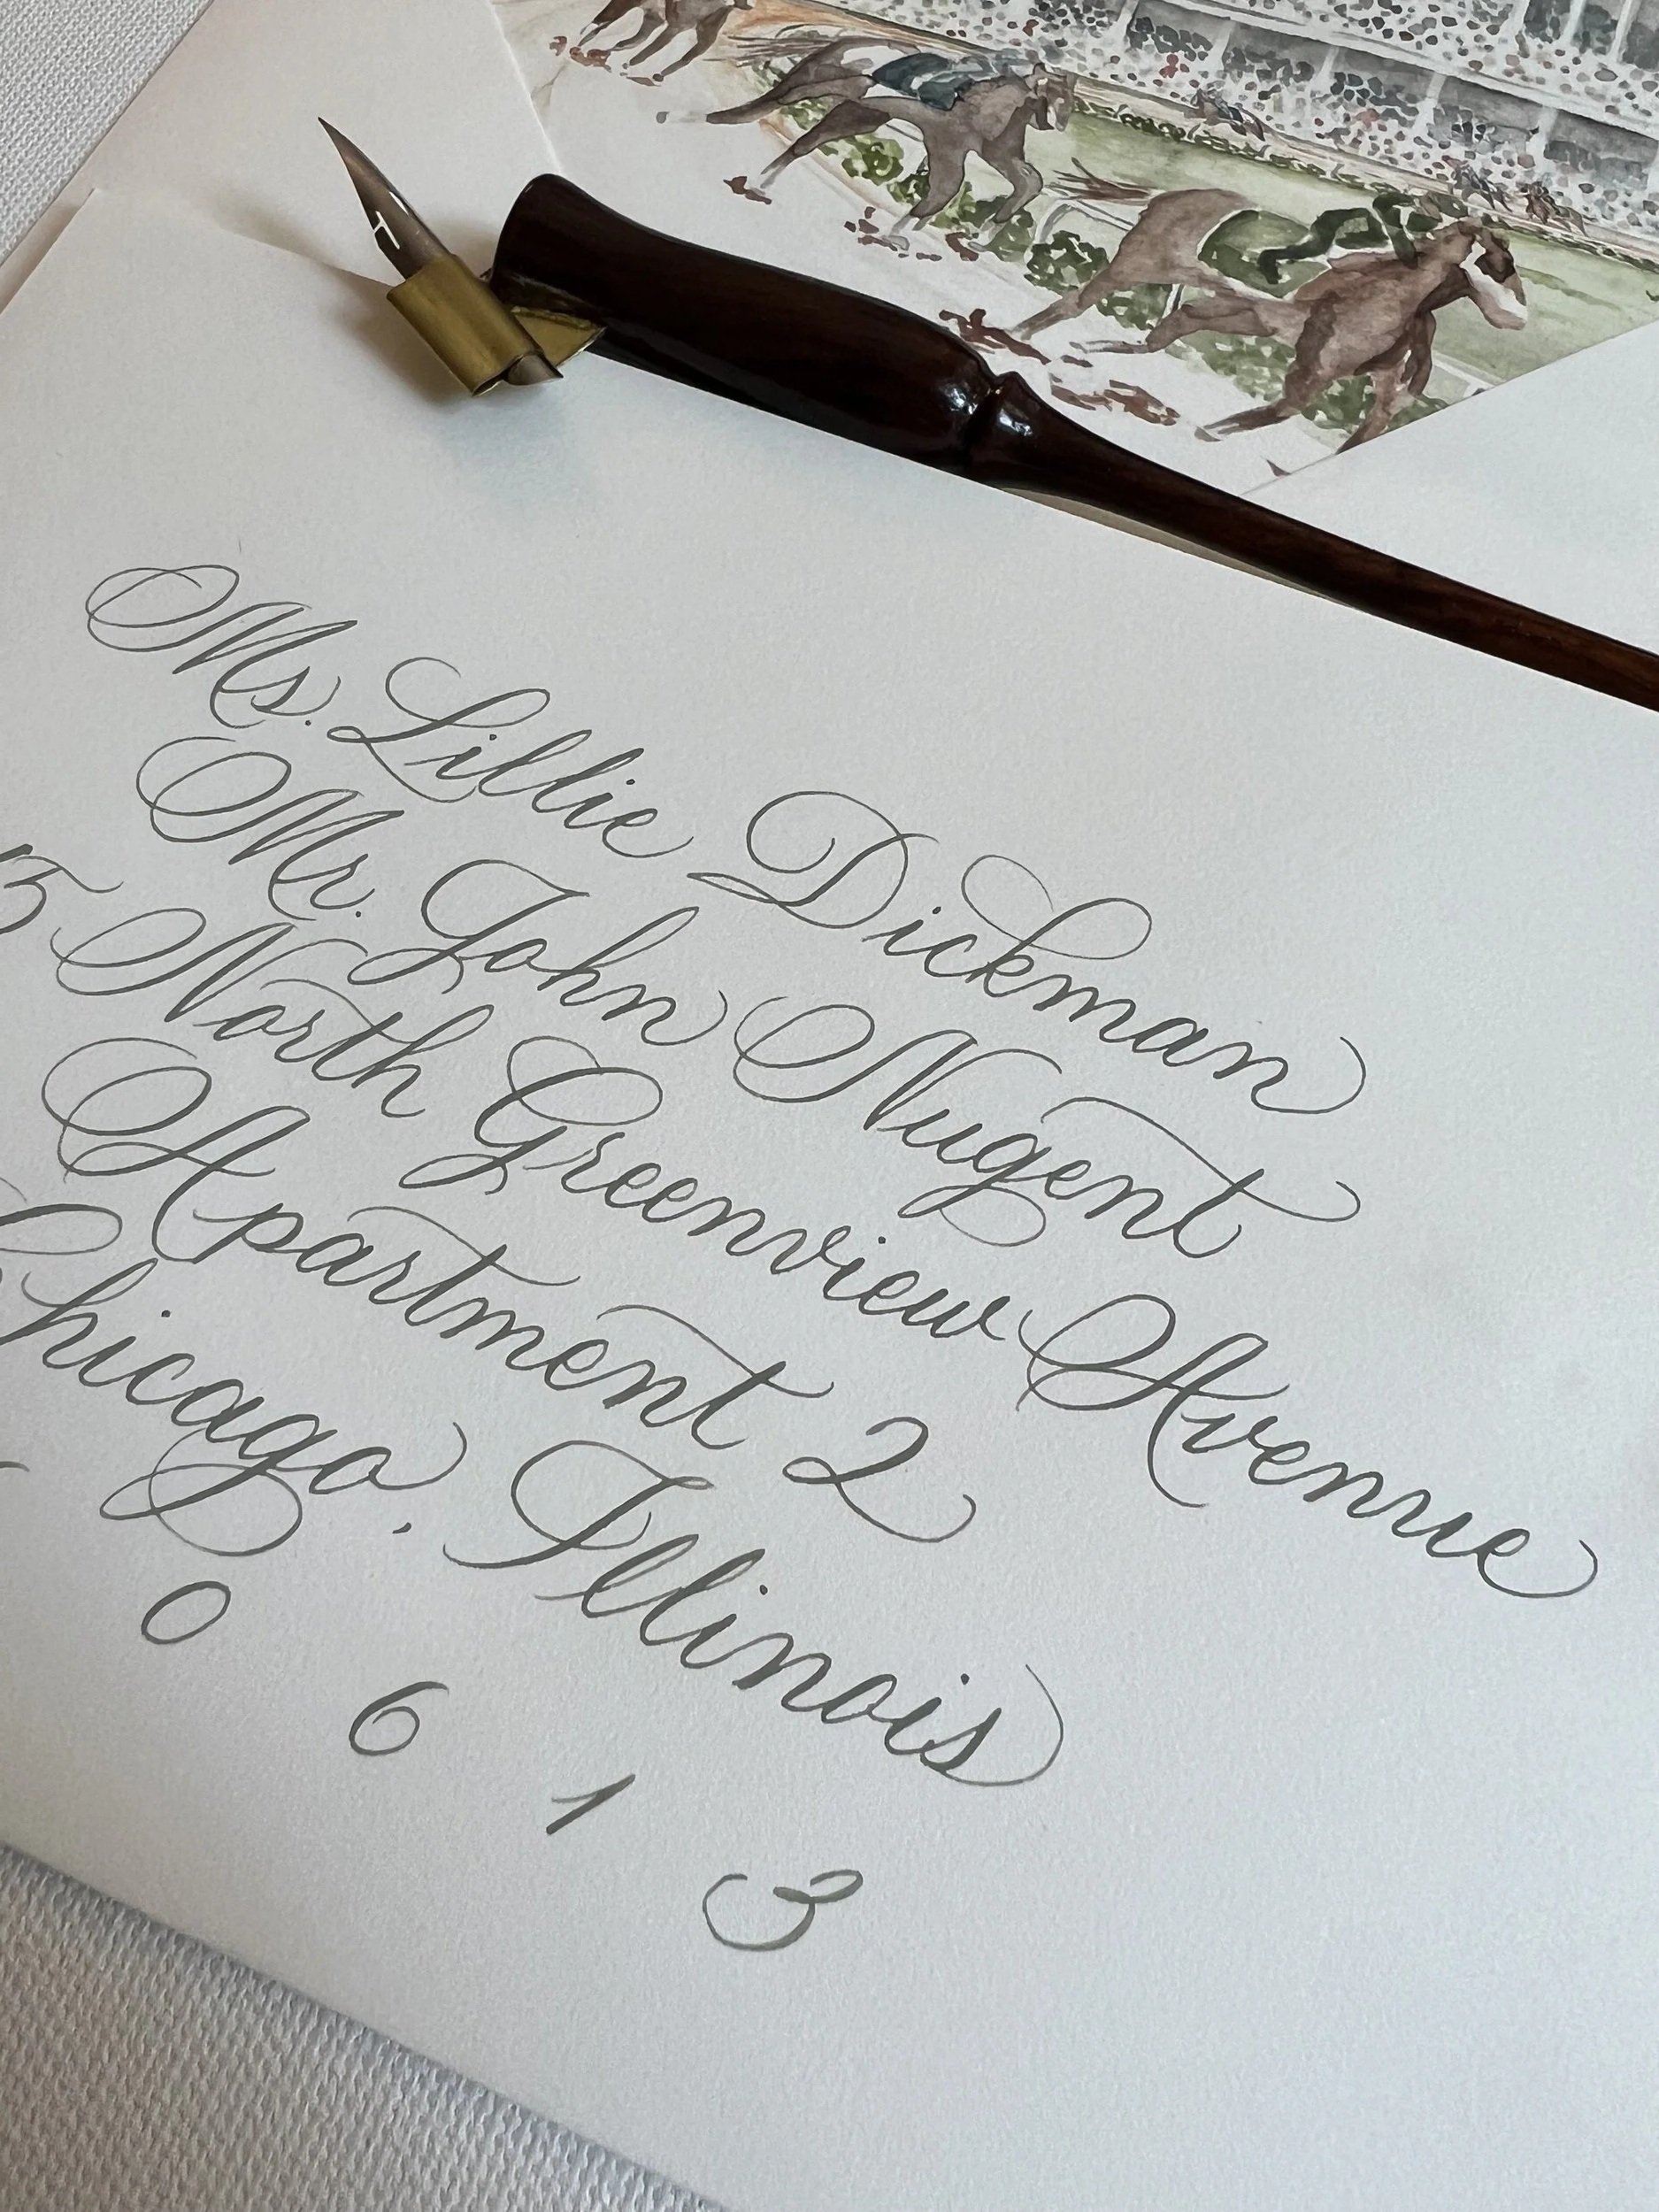 Ms. Lillie Dickman
Mr. John Nugent
15 North Greenview Avenue
Apartment 2
Chicago, Illinois
0 6 1 3